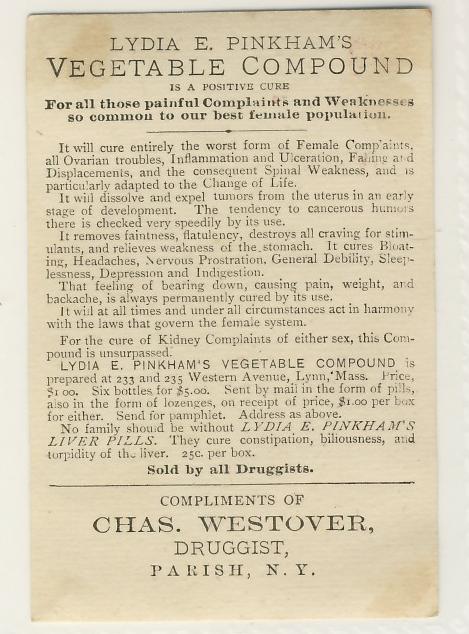 LYDIA E. PINKHAM'S
VEGETABLE COMPOUND
IS A POSITIVE CURE
For all those painful Complaints and Weaknesses
so common to our best female population.
It will cure entirely the worst form of Female Complaints,
all Ovarian troubles, Inflammation and Ulceration, Falling and
Displacements, and the consequent Spinal Weakness, and is
particularly adapted to the Change of Life.
It will dissolve and expel tumors from the uterus in an early
stage of development. The tendency to cancerous humors
there is checked very speedily by its use.
It removes faintness, flatulency, destroys all craving for stim-
ulants, and relieves weakness of the stomach. It cures Bloat-
ing, Headaches, Nervous Prostration, General Debility, Sleep-
lessness, Depression and Indigestion.
That feeling of bearing down, causing pain, weight, and
backache, is always permanently cured by its use.
It will at all times and under all circumstances act in harmony
with the laws that govern the female system.
For the cure of Kidney Complaints of either sex, this Com-
pound is unsurpassed.
LYDIA E. PINKHAM'S VEGETABLE COMPOUND is
prepared at 233 and 235 Western Avenue, Lynn, Mass. Price,
$1.00. Six bottles for $5.00. Sent by mail in the form of pills,
also in the form of lozenges, on receipt of price, $1.00 per box
for either. Send for pamphlet. Address as above.
No family should be without LYDIA E. PINKHAM'S
LIVER PILLS. They cure constipation, biliousness, and
torpidity of the liver. 25c. per box.
Sold by all Druggists.
COMPLIMENTS OF
CHAS. WESTOVER,
DRUGGIST,
PARISH, N. Y.